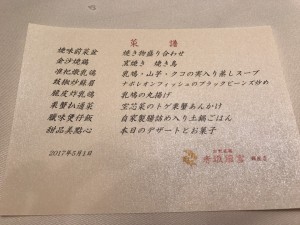 菜譜
焼味前菜盆 焼き物盛り合わせ
金沙焼鶏 窯焼き 焼き鳥
准杞燉乳鴿 乳鳩・山芋・クコの実入り蒸しスープ
豉椒炒蘇眉 ナポレオンフィッシュのブラックビーンズ炒め
脆皮炸乳鴿 乳鳩の丸揚げ
東蟹扒通菜 空芯菜のトゲ東蟹あんかけ
臘味煲仔飯 自家製腸詰め入り土鍋ごはん
甜品美點心 本日のデザートとお菓子
2017年5月1日
赤坂璃宮 銀座店